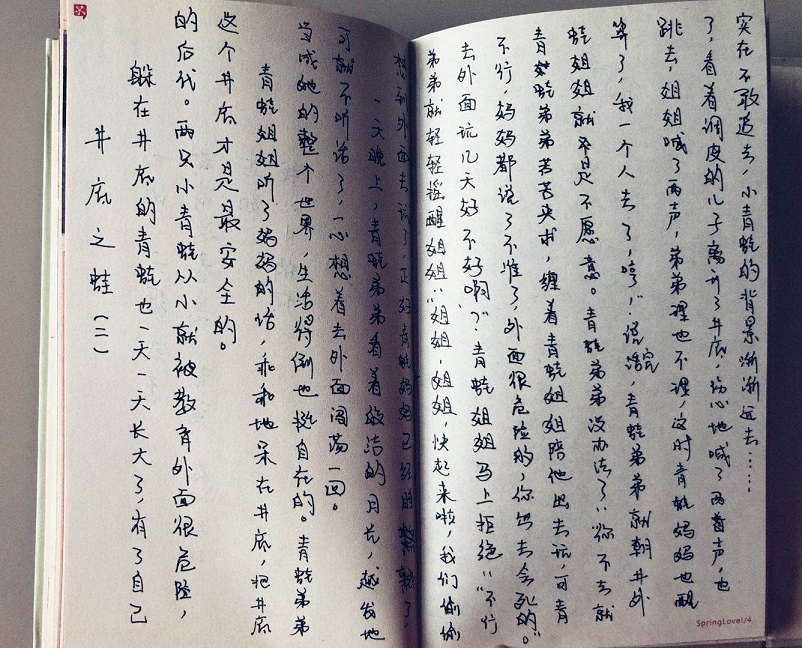 井底之蛙（二）
躲在井底的青蛙也一天一天长大了，有了自己
的后代。两只小青蛙从小就被教育外面很危险，
这个井底才是最安全的。
青蛙姐姐听了妈妈的话，乖乖地呆在井底，把井底
当成她的整个世界，生活得倒也挺自在的。青蛙弟弟
可就不听话了，一心想着去外面闯荡一回。
一天晚上，青蛙弟弟看着皎洁的月光，越发地
想到外面去玩了，正好青蛙妈妈已经睡熟了，
弟弟就轻轻摇醒姐姐：“姐姐，姐姐，快起来啦，我们偷偷
去外面玩几天好不好啊？”青蛙姐姐马上拒绝：“不行
不行，妈妈都说了不准了，外面很危险的，你出去会死的。”
青蛙弟弟苦苦央求，缠着青蛙姐姐陪他出去玩，可青
蛙姐姐就是不愿意。青蛙弟弟没办法了：“你不去就
算了，我一个人去了，哼！”说完话，青蛙弟弟就朝井外
跳去，姐姐喊了两声，弟弟理也不理，这时青蛙妈妈也醒
了，看着调皮的儿子离开了井底，伤心地喊了两声，也
实在不敢追去，小青蛙的背景渐渐远去……
SpringLove//4